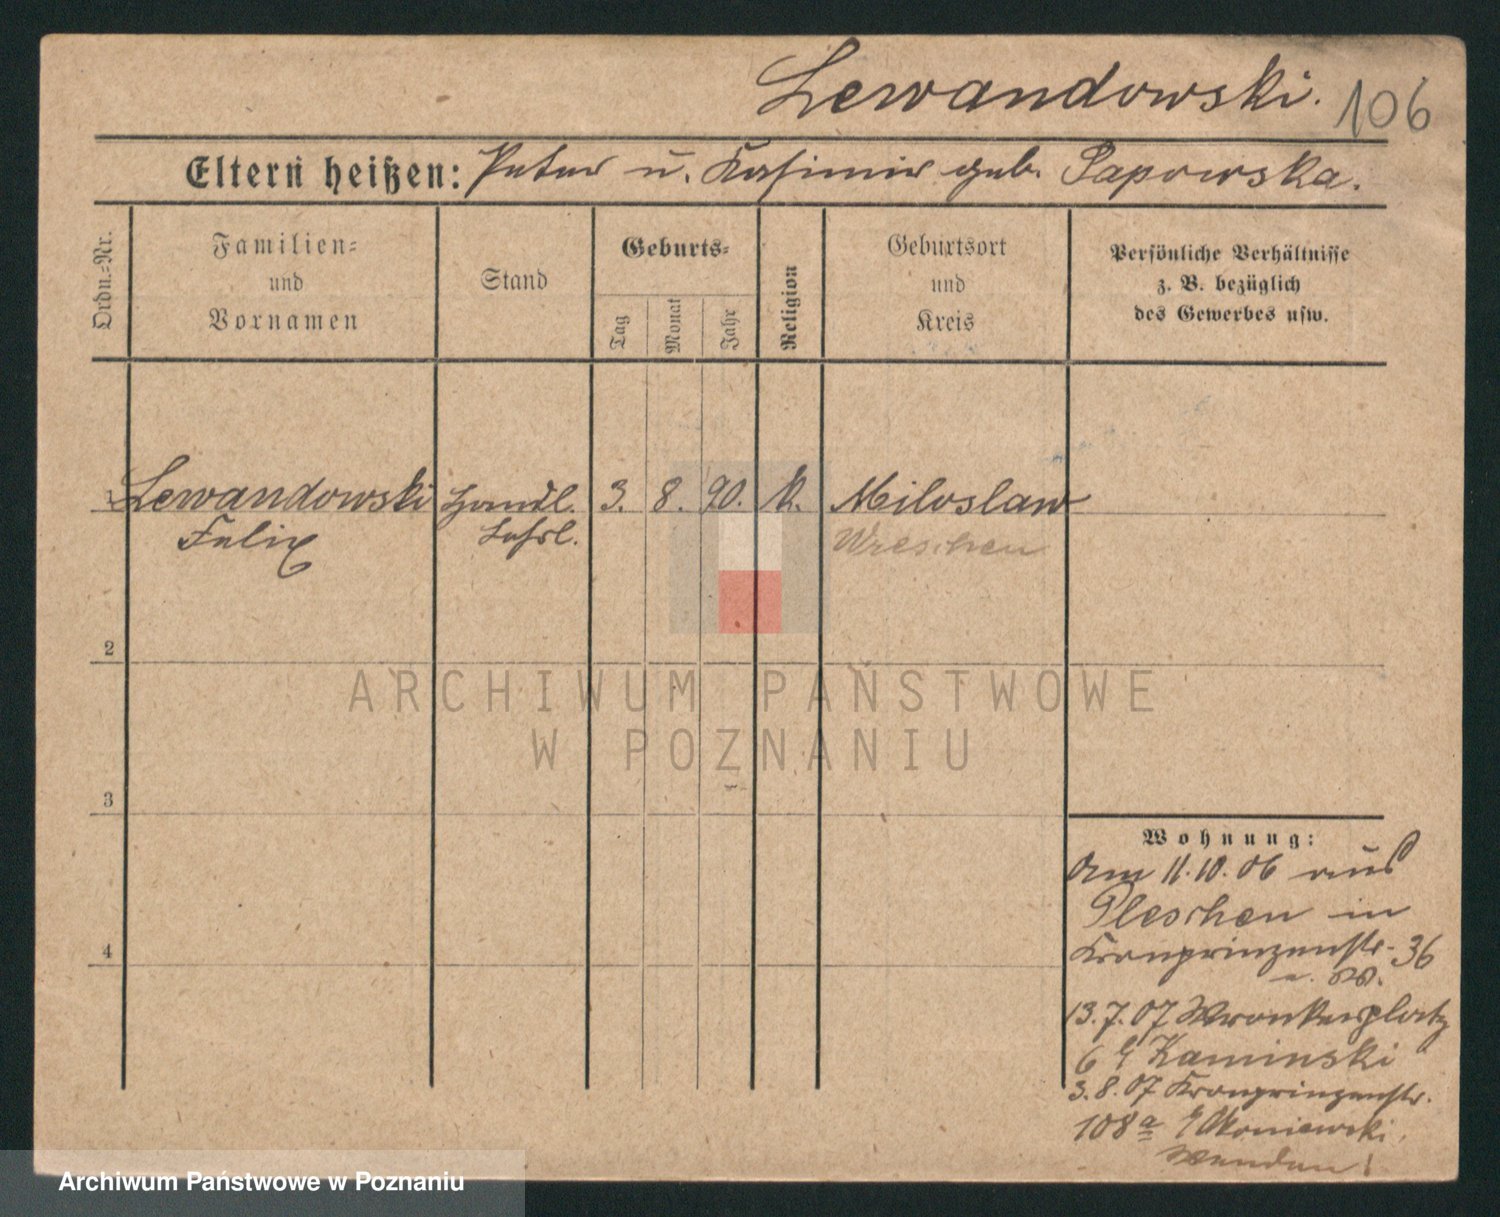 Lewandowski. 106
Eltern heißen: Peter u. Kasimir geb. Papowska.
Ordn.-Nr.
Familien-
und
Vornamen
Stand
Geburts-
Tag
Monat
Jahr
Religion
Geburtsort
und
Kreis
Persönliche Verhältnisse
z. B. bezüglich
des Gewerbes usw.
1 Lewandowski Handl. 3. 8. 90. k. Miloslaw
Felix Lehrl. Wreschen
2
ARCHIWUM PAŃSTWOWE
W POZNANIU
3
Wohnung:
Am 11.10.06 aus
Pleschen in
4
Kronprinzenstr. 36
13.7.07 Wronkerplatz
6 Kaminski
3.8.07 Kronprinzenstr.
108a
Wenden!
Archiwum Państwowe w Poznaniu